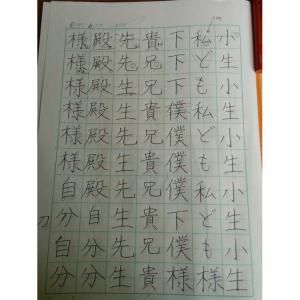 小生小生小生小生小生
私ども私ども私ども様
下下下僕僕僕僕下僕様
貴兄兄貴兄貴兄貴兄貴
先先先生先生先生先生
殿殿殿殿殿殿殿自分分
様様様様様様自分自分
刀